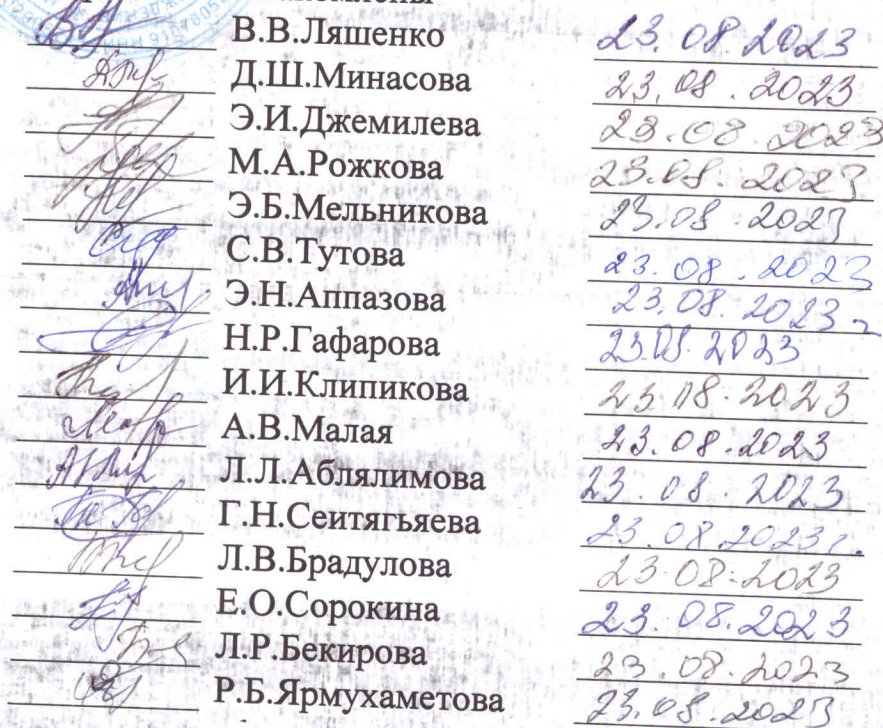 В.В.Ляшенко 23.08.2023
Д.Ш.Минасова 23.08.2023
Э.И.Джемилева 23.08.2023
М.А.Рожкова 23.08.2023
Э.Б.Мельникова 23.08.2023
С.В.Тутова 23.08.2023
Э.Н.Аппазова 23.08.2023г
Н.Р.Гафарова 23.08.2023
И.И.Клипикова 23.08.2023
А.В.Малая 23.08.2023
Л.Л.Аблялимова 23.08.2023
Г.Н.Сеитягьяева 23.08.2023г.
Л.В.Брадулова 23.08.2023
Е.О.Сорокина 23.08.2023
Л.Р.Бекирова 23.08.2023
Р.Б.Ярмухаметова 23.08.2023